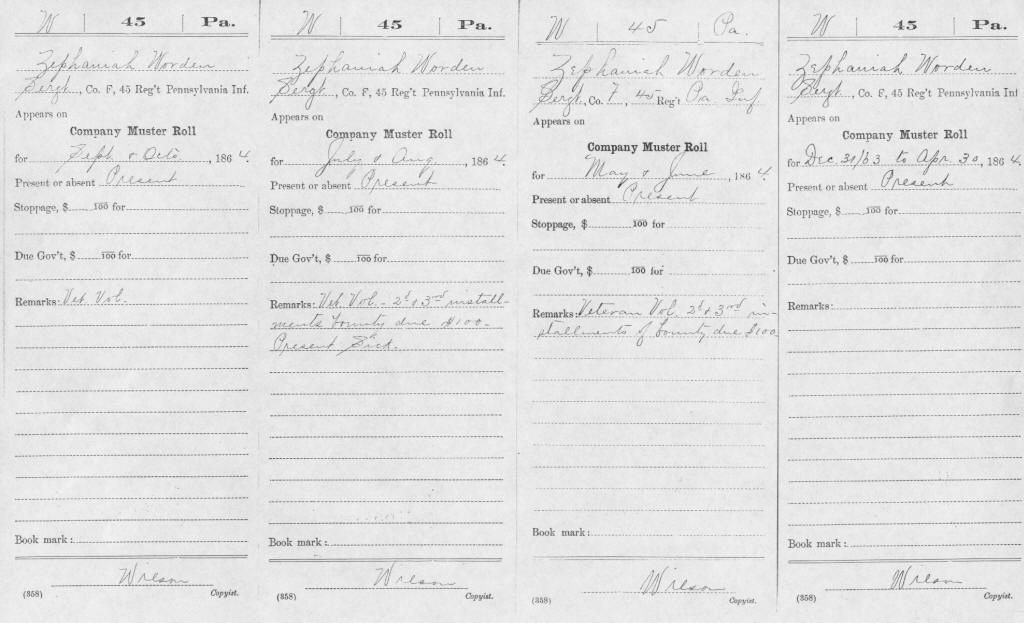 W | 45 | Pa.
Zephaniah Worden
Sergt., Co. F, 45 Reg't Pennsylvania Inf.
Appears on
Company Muster Roll
for Sept & Octo, 1864.
Present or absent Present
Stoppage, $ 100 for
Due Gov't, $ 100 for
Remarks: Vet. Vol.
Book mark:
Wilson
(358) Copyist.
W | 45 | Pa.
Zephaniah Worden
Sergt., Co. F, 45 Reg't Pennsylvania Inf.
Appears on
Company Muster Roll
for July & Aug., 1864.
Present or absent Present
Stoppage, $ 100 for
Due Gov't, $ 100 for
Remarks: Vet. Vol - 2d & 3rd install-
ments bounty due $100-
Present Sick.
Book mark:
Wilson
(358) Copyist.
W | 45 | Pa.
Zephaniah Worden
Sergt., Co. F, 45 Reg't Pa Inf
Appears on
Company Muster Roll
for May & June, 1864.
Present or absent Present
Stoppage, $ 100 for
Due Gov't, $ 100 for
Remarks: Veteran Vol. 2d & 3rd in-
stallments of bounty due $100-
Book mark:
Wilson
(358) Copyist.
W | 45 | Pa.
Zephaniah Worden
Sergt., Co. F, 45 Reg't Pennsylvania Inf
Appears on
Company Muster Roll
for Dec 31/63 to Apr. 30, 1864.
Present or absent Present
Stoppage, $ 100 for
Due Gov't, $ 100 for
Remarks:
Book mark:
Wilson
(358) Copyist.